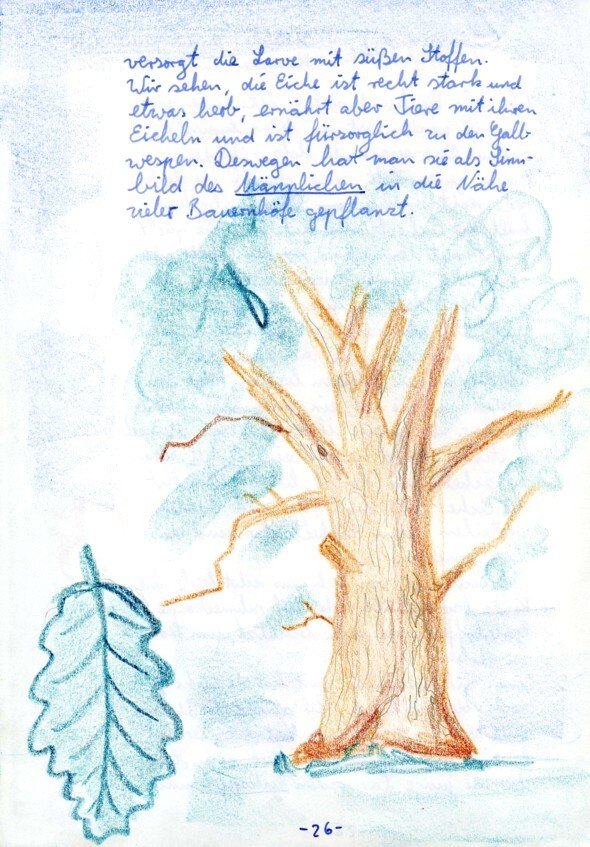 versorgt die Larve mit süßen Stoffen.
Wir sehen, die Eiche ist recht stark und
etwas herb, ernährt aber Tiere mit ihren
Eicheln und ist fürsorglich zu den Gall-
wespen. Deswegen hat man sie als Sinn-
bild des Männlichen in die Nähe
vieler Bauernhöfe gepflanzt.
-26-